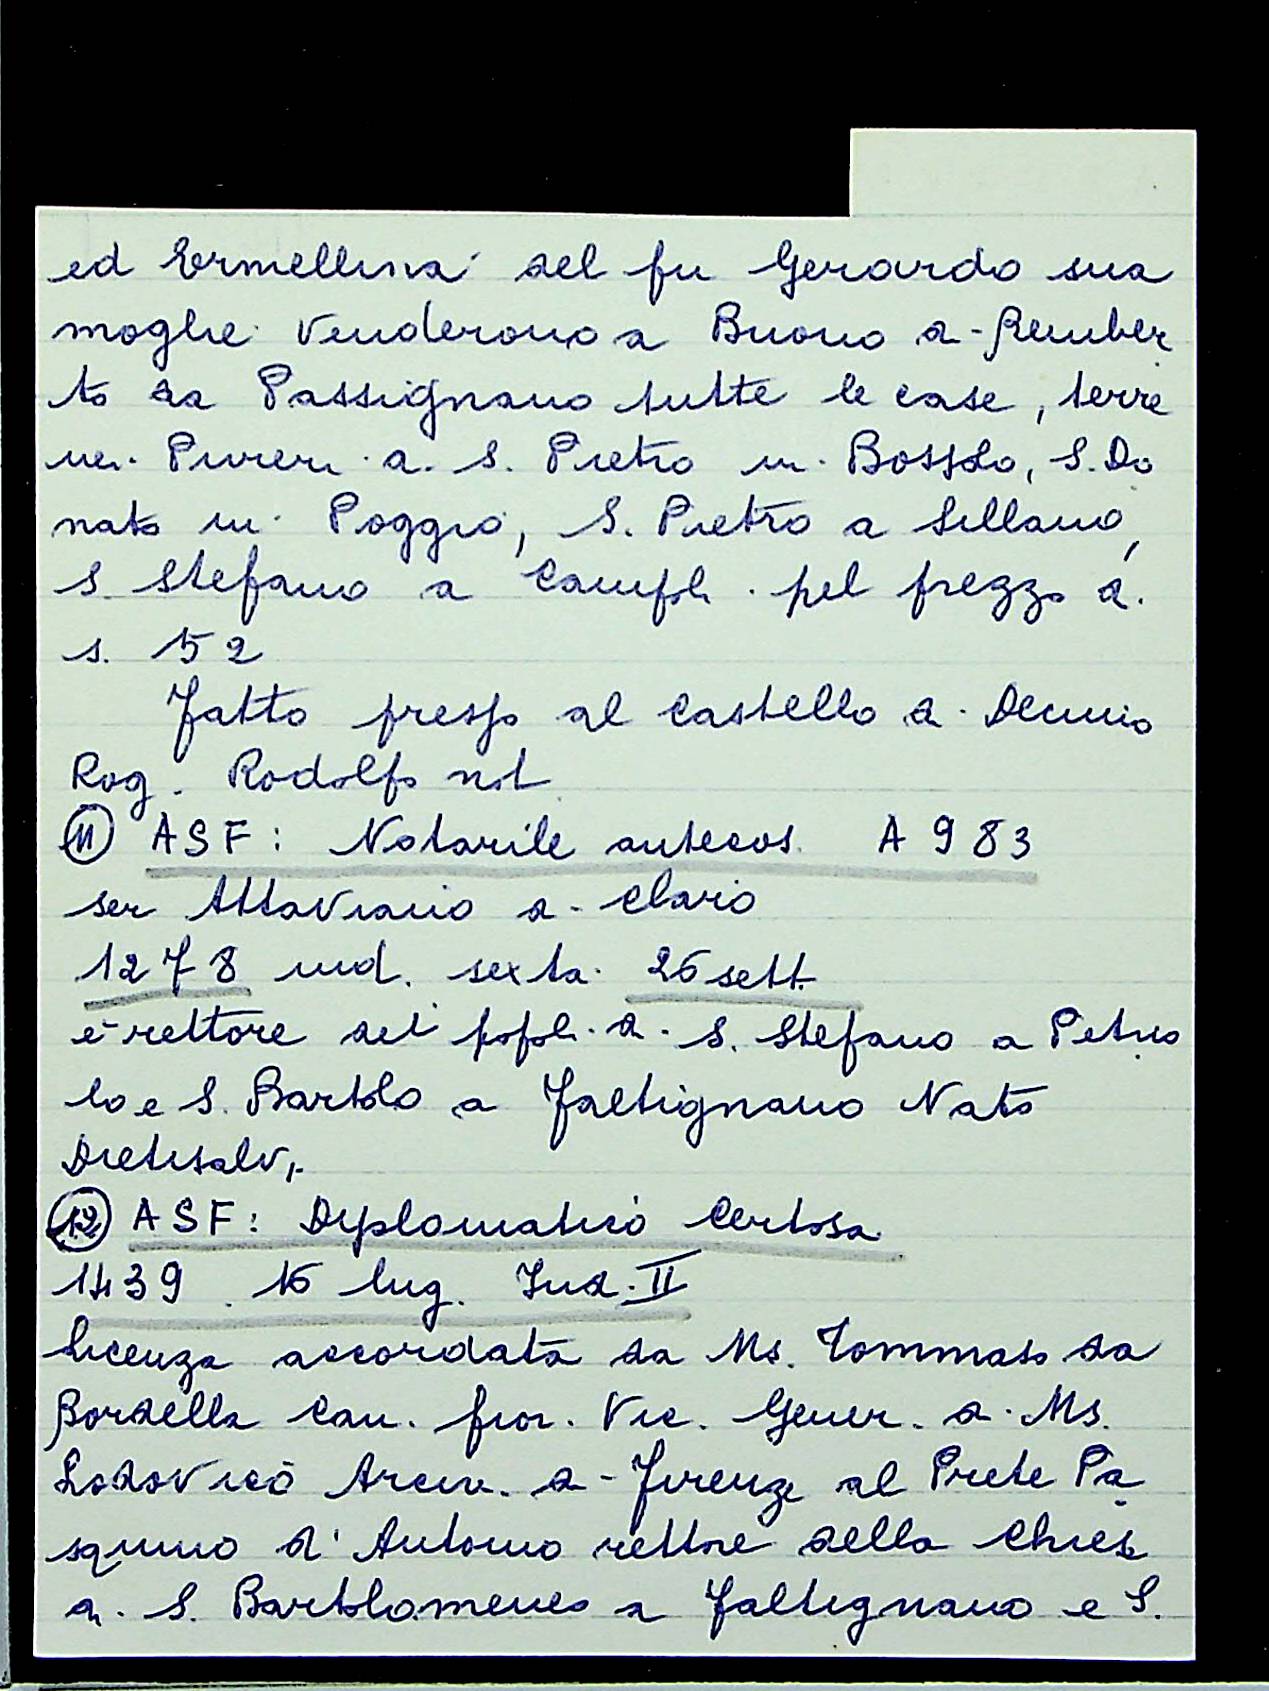 ed Ermellina del fu Gerardo sua
moglie venderono a Buono di Rember
to da Passignano tutte le case, terre
nei Pivieri di S. Pietro in Bossolo, S. Do
nato in Poggio, S. Pietro a Sillano,
S. Stefano a Campoli pel prezzo di
s. 52
Fatto presso al castello di Decimio
Rog. Rodolfo not.
(11) ASF: Notarile antecos. A 983
ser Attaviano di Claro
1278 ind. sexta. 26 sett.
è rettore dei popoli di S. Stefano a Petrio
lo e S. Bartolo a Faltignano Nato
Dietisalvi
(12) ASF: Diplomatico Certosa
1439. 16 lug. Ind. II
Licenza accordata da Ms. Tommaso da
Bordella Can. fior. Vic. Gener. di Ms.
Lodovico Arciv. di Firenze al Prete Pa
squino d'Antonio rettore della Chiesa
di S. Bartolomeneo a Faltignano e S.